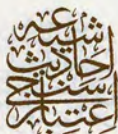 اعتبار
سنجی
احادیث
شیعه